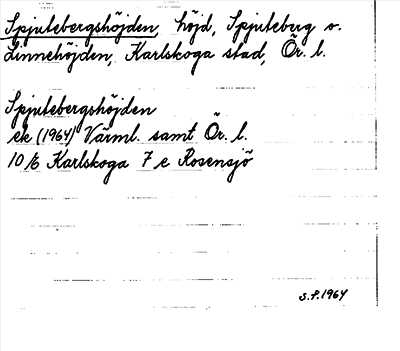 Spjutebergshöjden, höjd, Spjuteberg o.
Linnehöjden, Karlskoga stad, Ör. l.
Spjutebergshöjden
ek (1964) Värml. samt Ör. l.
10 E Karlskoga 7 e Rosensjö
S.P. 1964